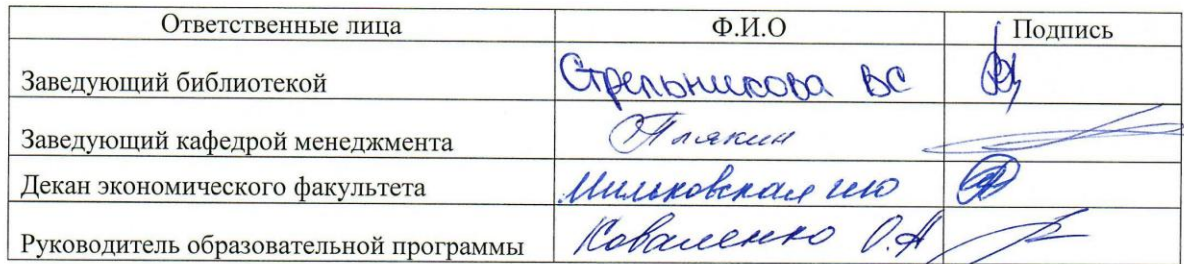 Ответственные лица Ф.И.О Подпись
Заведующий библиотекой Стрельникова ВС
Заведующий кафедрой менеджмента Плякин
Декан экономического факультета
Руководитель образовательной программы Коваленко О.А